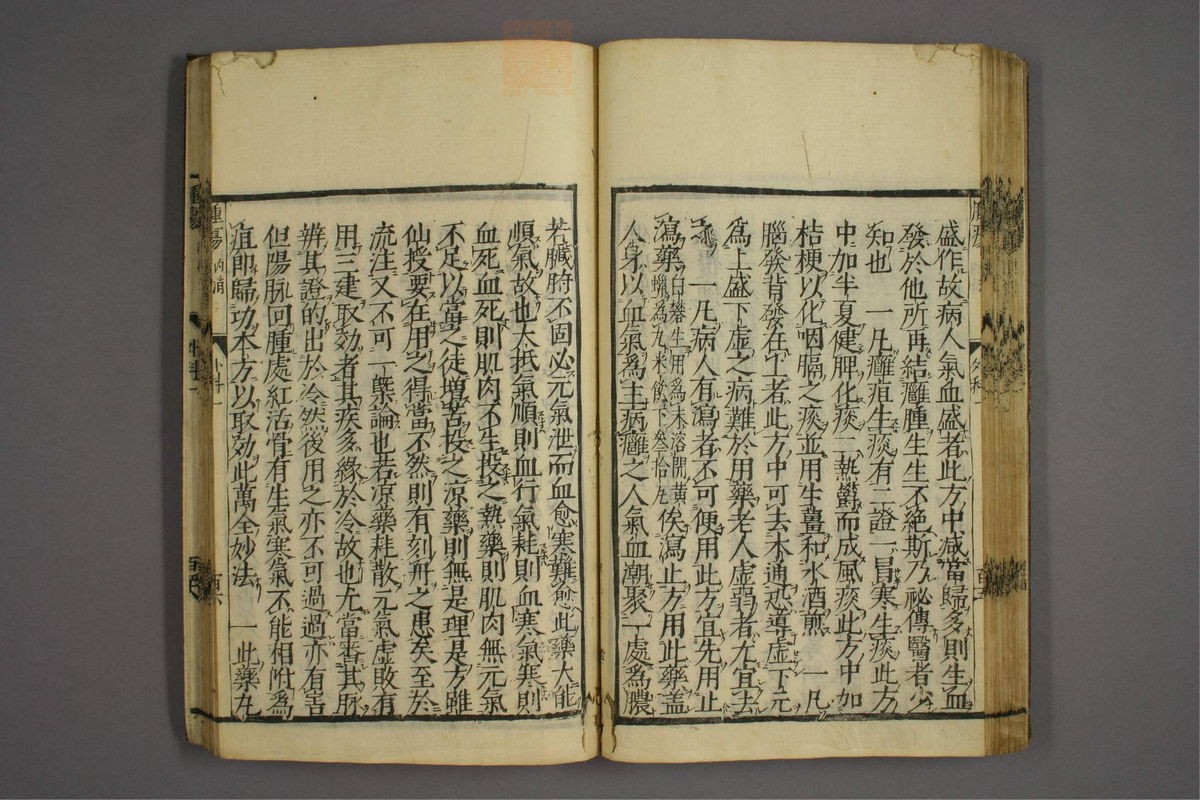 盛作故病人氣血盛者此方中减當歸多則生血
發於他所再結癰腫生生不絕斯乃祕傳醫者少
知也　一凡癰疽生痰有二證一冒寒生痰此方
中加半夏健脾化痰二熱欝而成風痰此方中加
桔梗以化咽膈之痰並用生薑和水酒煎　一凡
腦發背發在上者此方中可去木通恐導虛下元
爲上盛下虛之病難於用藥老人虛弱者尤宜去
一凡病人有瀉者不可便用此方宜先用止
瀉藥白礬生用爲末溶開黃蠟爲丸米飲下叁拾丸俟瀉止方用此藥盖
人身以血氣爲主病癰之人氣血潮聚一處爲膿
若臟腑不固必元氣泄而血愈寒難愈此藥大能
順氣故也大抵氣順則血行氣耗則血寒氣寒則
血死血死則肌肉不生投之熱藥則肌肉無元氣
不足以當之徒增苦投之凉藥則無是理是方雖
仙授要在用之得當不然則有刻舟之患矣至於
流注又不可一槩論也若凉藥耗散元氣虛敗有
用三建取効者其疾多緣於冷故也尤當審其脉
辨其證的出於冷然後用之亦不可過過亦有害
但陽脉回腫處紅活骨有生氣寒氣不能相附爲
疽即歸功本方以取効此萬全妙法　一此藥九
腫瘍
内消
外科